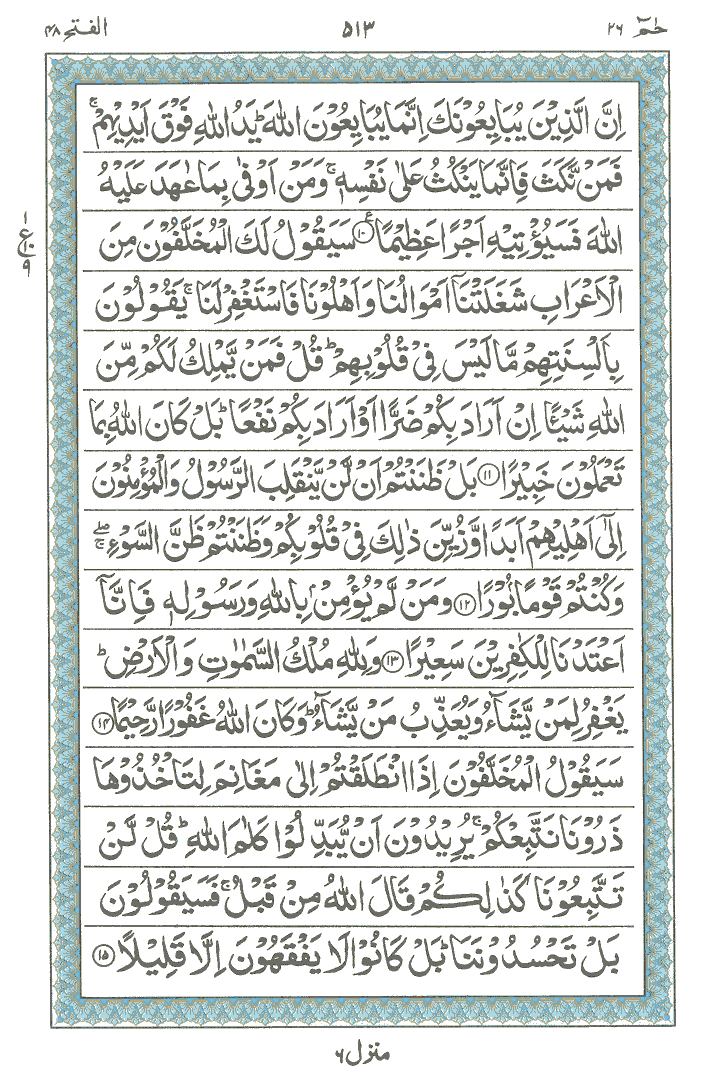 حٰمٓ ٢٦
٥١٣
الفتح ٤٨
اِنَّ الَّذِيْنَ يُبَايِعُوْنَكَ اِنَّمَا يُبَايِعُوْنَ اللّٰهَ ؕ يَدُ اللّٰهِ فَوْقَ اَيْدِيْهِمْ ۚ
فَمَنْ نَّكَثَ فَاِنَّمَا يَنْكُثُ عَلٰى نَفْسِهٖ ۚ وَمَنْ اَوْفٰى بِمَا عٰهَدَ عَلَيْهُ
اللّٰهَ فَسَيُؤْتِيْهِ اَجْرًا عَظِيْمًا ۧ ١٠ سَيَقُوْلُ لَكَ الْمُخَلَّفُوْنَ مِنَ
ع
١
١٠
٩
الْاَعْرَابِ شَغَلَتْنَاۤ اَمْوَالُنَا وَاَهْلُوْنَا فَاسْتَغْفِرْ لَنَا ۚ يَقُوْلُوْنَ
بِاَلْسِنَتِهِمْ مَّا لَيْسَ فِيْ قُلُوْبِهِمْ ؕ قُلْ فَمَنْ يَّمْلِكُ لَكُمْ مِّنَ
اللّٰهِ شَيْـًٔا اِنْ اَرَادَ بِكُمْ ضَرًّا اَوْ اَرَادَ بِكُمْ نَفْعًا ؕ بَلْ كَانَ اللّٰهُ بِمَا
تَعْمَلُوْنَ خَبِيْرًا ١١ بَلْ ظَنَنْتُمْ اَنْ لَّنْ يَّنْقَلِبَ الرَّسُوْلُ وَالْمُؤْمِنُوْنَ
اِلٰۤى اَهْلِيْهِمْ اَبَدًا وَّزُيِّنَ ذٰلِكَ فِيْ قُلُوْبِكُمْ وَظَنَنْتُمْ ظَنَّ السَّوْءِ ۖۚ
وَكُنْتُمْ قَوْمًۢا بُوْرًا ١٢ وَمَنْ لَّمْ يُؤْمِنْۢ بِاللّٰهِ وَرَسُوْلِهٖ فَاِنَّاۤ
اَعْتَدْنَا لِلْكٰفِرِيْنَ سَعِيْرًا ١٣ وَلِلّٰهِ مُلْكُ السَّمٰوٰتِ وَالْاَرْضِ ؕ
يَغْفِرُ لِمَنْ يَّشَآءُ وَيُعَذِّبُ مَنْ يَّشَآءُ ؕ وَكَانَ اللّٰهُ غَفُوْرًا رَّحِيْمًا ١٤
سَيَقُوْلُ الْمُخَلَّفُوْنَ اِذَا انْطَلَقْتُمْ اِلٰى مَغَانِمَ لِتَاْخُذُوْهَا
ذَرُوْنَا نَتَّبِعْكُمْ ۚ يُرِيْدُوْنَ اَنْ يُّبَدِّلُوْا كَلٰمَ اللّٰهِ ؕ قُلْ لَّنْ
تَتَّبِعُوْنَا كَذٰلِكُمْ قَالَ اللّٰهُ مِنْ قَبْلُ ۚ فَسَيَقُوْلُوْنَ
بَلْ تَحْسُدُوْنَنَا ؕ بَلْ كَانُوْا لَا يَفْقَهُوْنَ اِلَّا قَلِيْلًا ١٥
منزل ٦